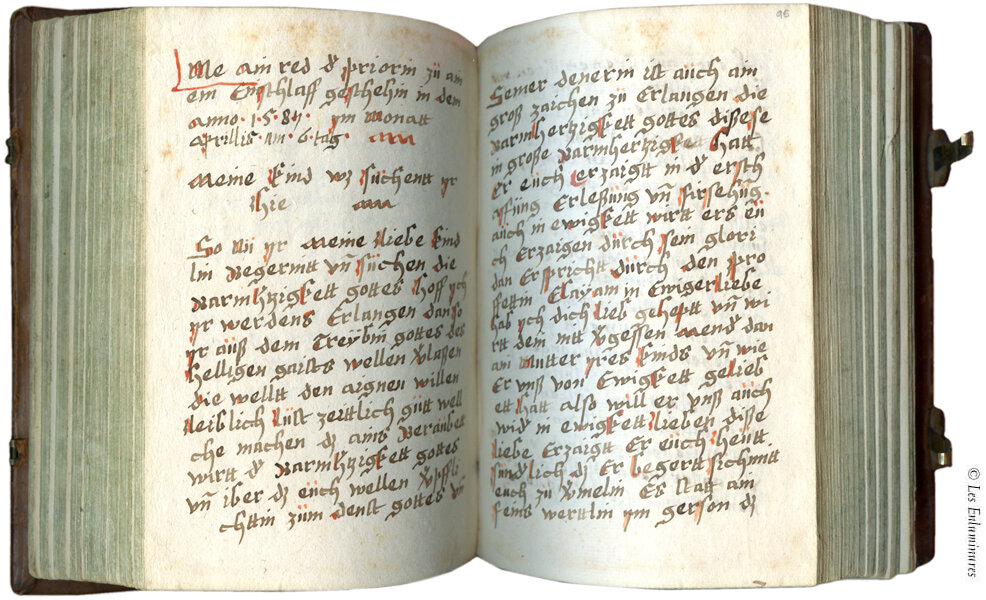 Me ain red d priorin zü am
ein Enschlaff geschehin in dem
anno · 1 · 5 · 84 · ym Monatt
aprillis · am · 6 · tag ·
meine kind wz süchentt yr
hie
So Nü yr meine liebe kind
lin Begerintt vn̄ süchen die
Barmhtzigkett gottes hoff ych
yr werdens Erlangen dan so
yr auß dem Treybin gottes des
helligen gaists wellen vlaßen
die welltt den argnen willen
leiblich lüst zerttlich gütt well
che machen dz ains Beraubett
wirtt d Barmhtzigkett gottes
vn̄ iber dz eüch wellen vpffli
chttin züm denst gottes vn̄
96
Seiner denerin ist aüch ain
groß zaichen zü Erlangen die
Barmhertzigkett gottes dißese
in große Barmhertzigkett hatt
Er eüch erzaigtt in d ersch
affüng Erleßüng vn̄ firsehüg ·
aüch in ewigkett wirtt ers eü
ch Erzaigen dürch sein glori
dan Er sprichtt dürch den pro
ffettin Esayam in Ewiger liebe
hab ych dich lieb geheptt vn̄ wi
rtt dein nitt vgessen mend dan
ain mutter yres kinds vn̄ wie
Er vnß von Ewigkett gelieb
ett hatt also will er vnß aüch
wid in ewigkett lieben diße
liebe Erzaigtt Er eüch heütt
sundlich dz Er begertt sich mitt
euch zü vmelin Es statt am
feins werttlin ym gerson dz
© Les Enluminures